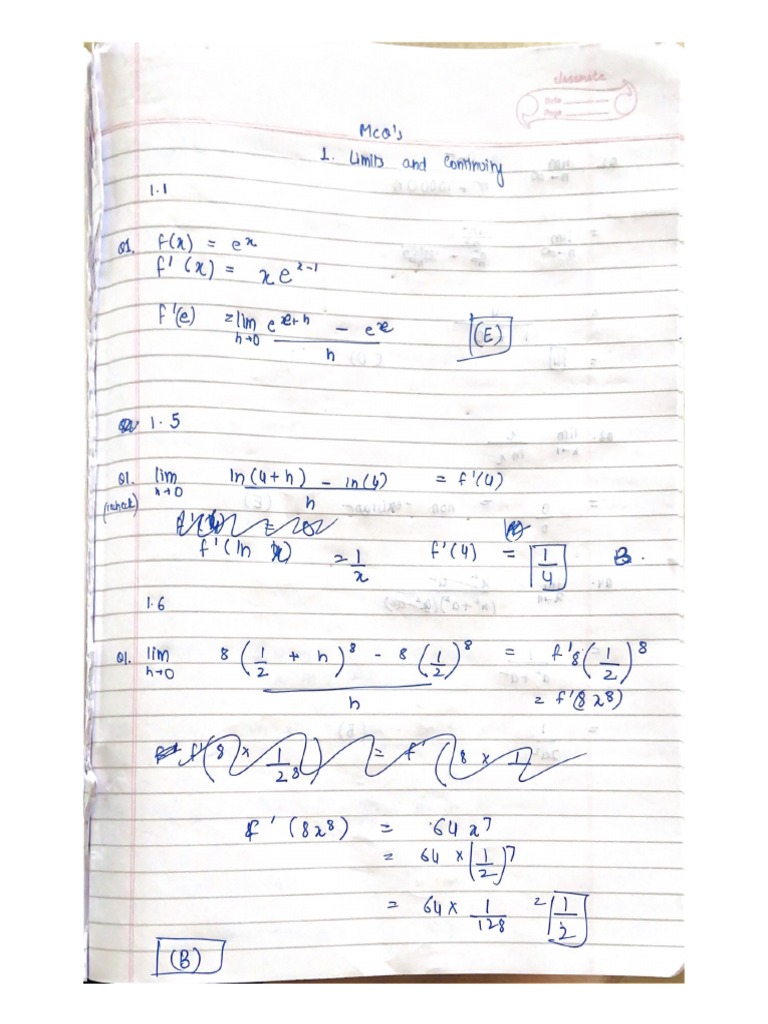 classmate
Date
Page
MCQ's
1. Limits and Continuity
1.1
Q1. f(x) = e^x
f'(x) = xe^(x-1)
f'(e) = lim h→0 (e^(x+h) - e^x)/h (E)
1.5
Q1. lim h→0 (ln(4+h) - ln(4))/h = f'(4)
f'(ln x) = 1/x f'(4) = 1/4 B.
1.6
Q1. lim h→0 (8(1/2 + h)^8 - 8(1/2)^8)/h = f'8(1/2)^8
= f'(8x^8)
f'(8x^8) = 64x^7
= 64 × (1/2)^7
= 64 × 1/128 = 1/2
(B)